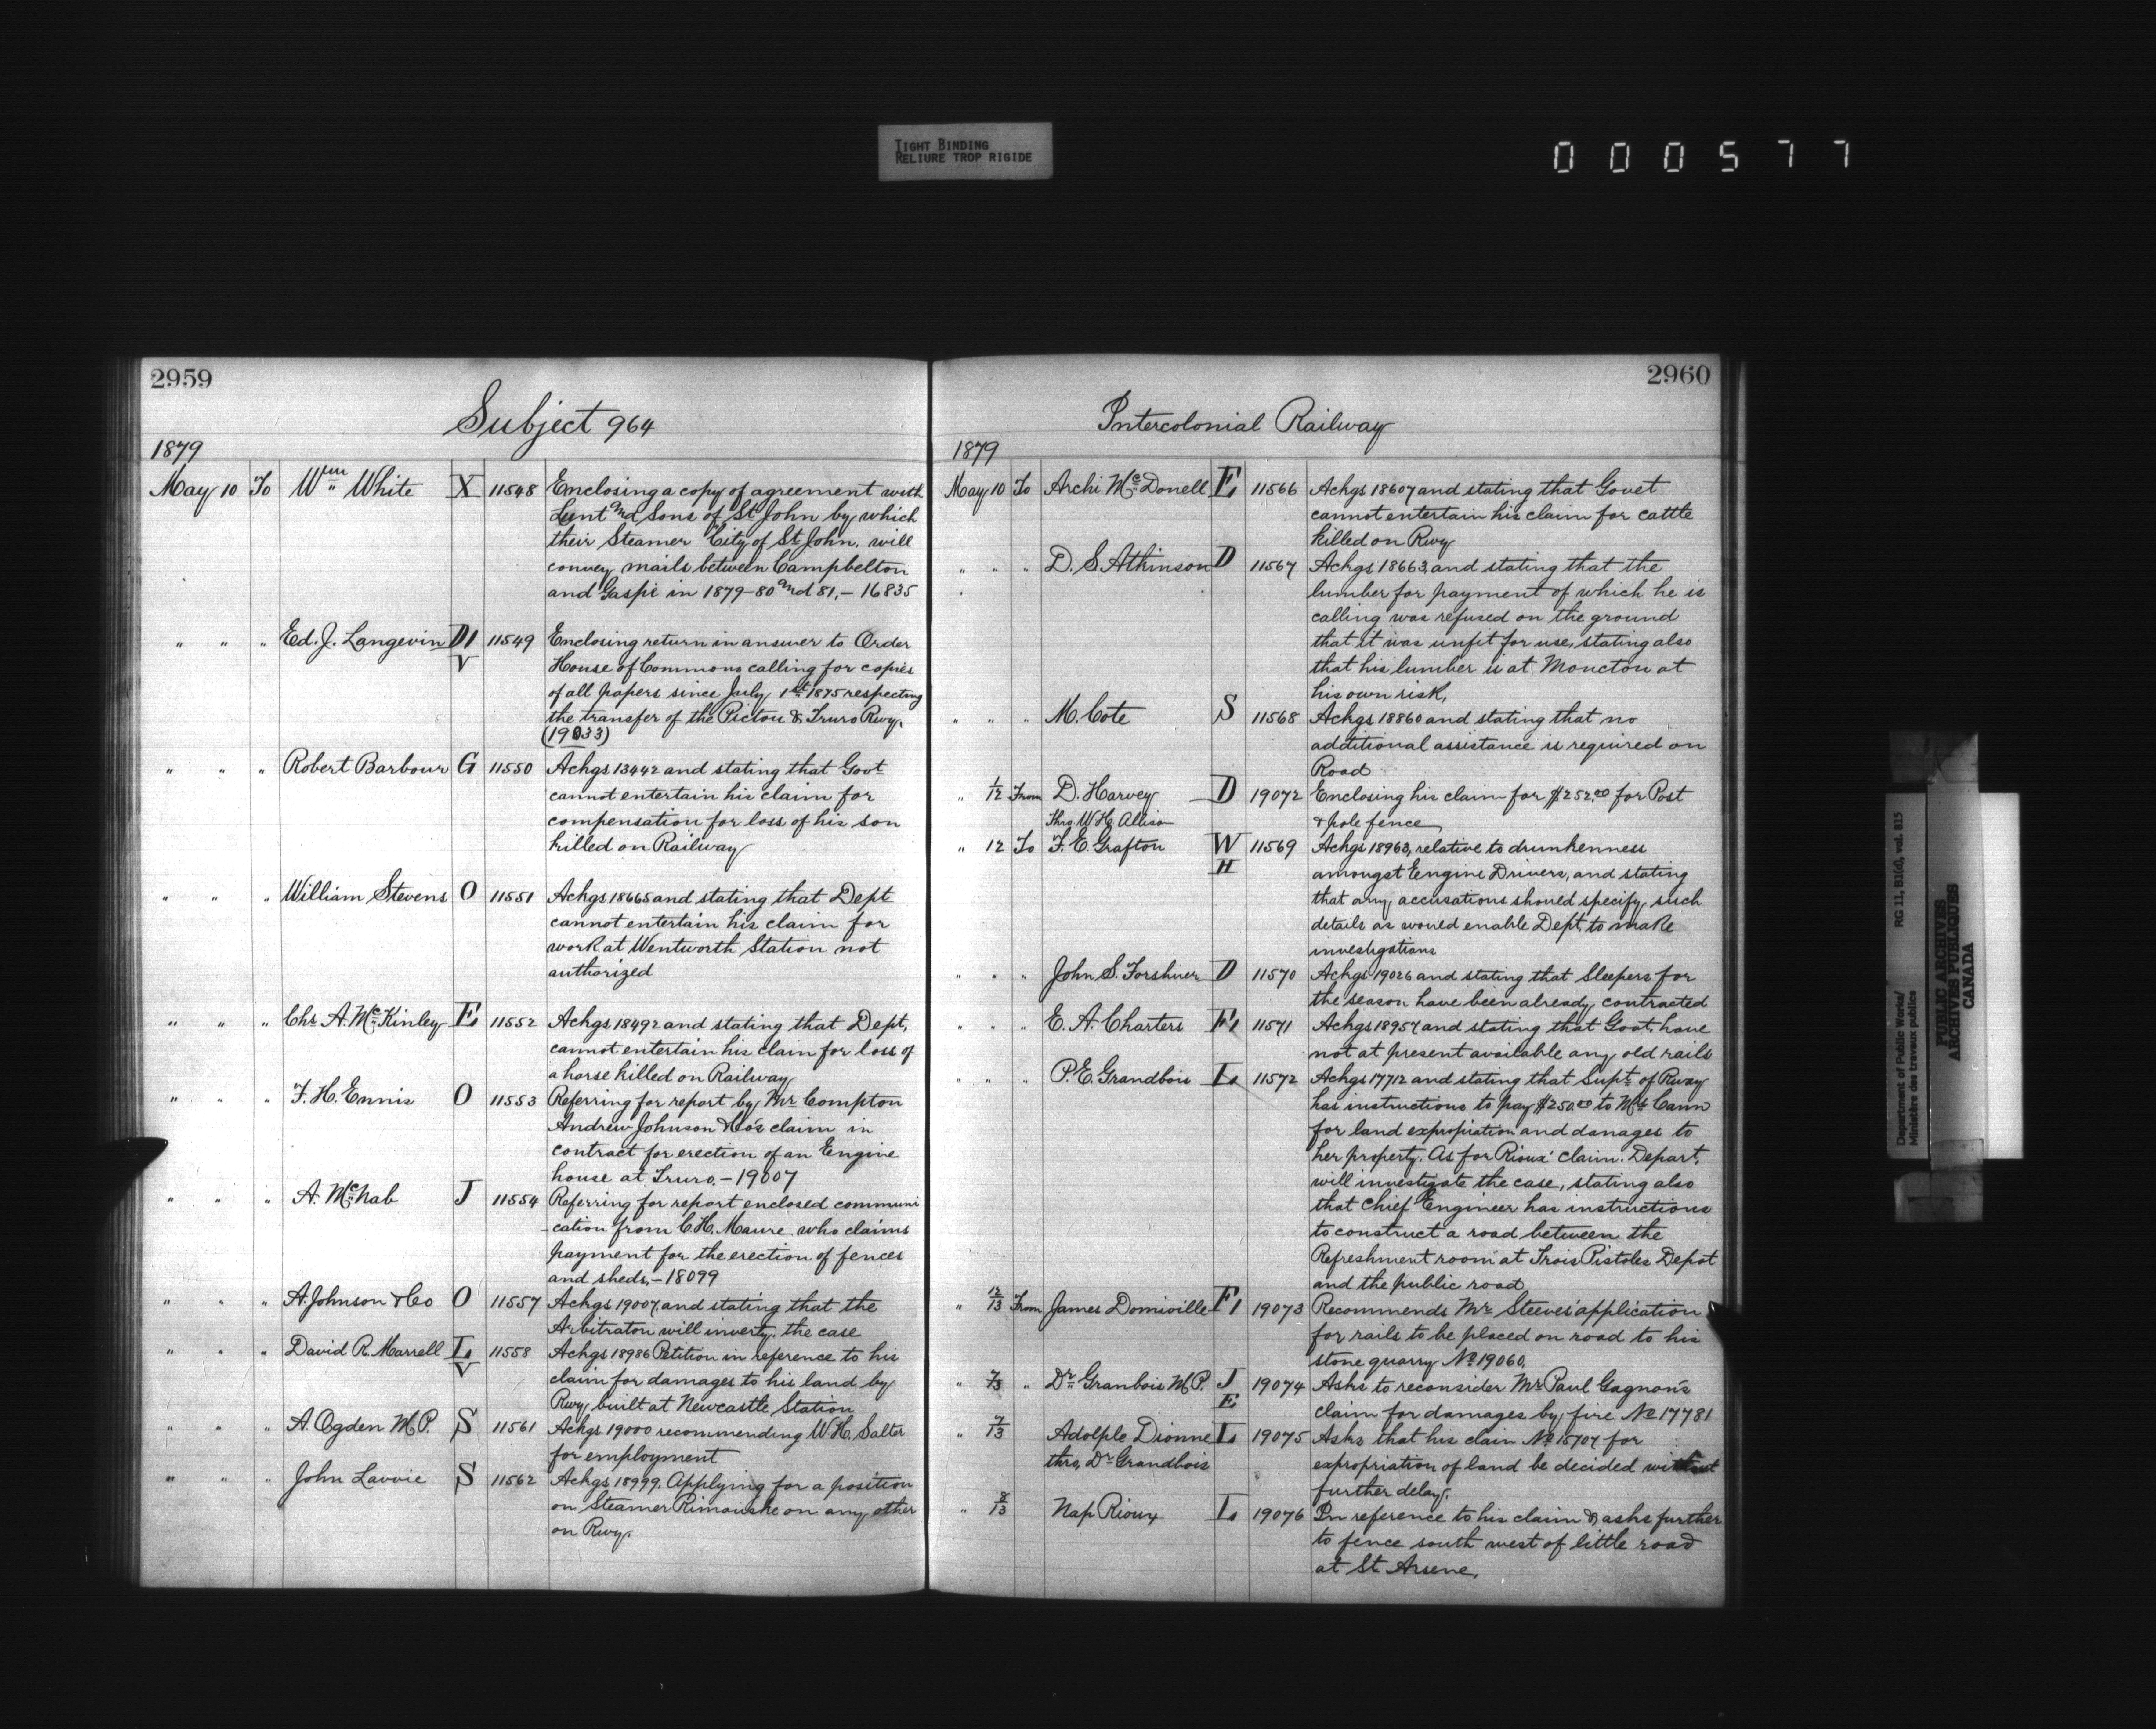 TIGHT BINDING
RELIURE TROP RIGIDE
000577
2959
Subject 964
1879
May 10 To Wm White X 11548 Enclosing a copy of agreement with
Lunt and Sons of St John by which
their Steamer City of St John. will
convey mails between Campbelton
and Gaspé in 1879-80 and 81,- 16835
" " " Ed. J. Langevin D1 V 11549 Enclosing return in answer to Order
House of Commons calling for copies
of all papers since July 1st 1875 respecting
the transfer of the Pictou & Truro Rwy.
(19033)
" " " Robert Barbour G 11550 Ackgs 13442 and stating that Govt
cannot entertain his claim for
compensation for loss of his son
killed on Railway
" " " William Stevens O 11551 Ackgs 18665 and stating that Dept
cannot entertain his claim for
work at Wentworth Station not
authorized
" " " Chs A. McKinley E 11552 Ackgs 18492 and stating that Dept,
cannot entertain his claim for loss of
a horse killed on Railway
" " " F. H. Ennis O 11553 Referring for report by Mr Compton
Andrew Johnson & Co's claim in
contract for erection of an Engine
house at Truro. - 19007
" " " A. McNab J 11554 Referring for report enclosed communi
-cation from C. H. Maure who claims
payment for the erection of fences
and sheds, - 18099
" " " A. Johnson & Co O 11557 Ackgs 19007 and stating that the
Arbitraton will investg. the case
" " " David R. Marrell L V 11558 Ackgs 18986 Petition in reference to his
claim for damages to his land by
Rwy built at Newcastle Station
" " " A. Ogden M.P. S 11561 Ackgs 19000 recommending W. H. Salter
for employment
" " " John Lavoie S 11562 Ackgs 18999. Applying for a position
on Steamer Rimouske on any other
on Rwy.
2960
Intercolonial Railway
1879
May 10 To Archi McDonell E 11566 Ackgs 18607 and stating that Govet
cannot entertain his claim for cattle
killed on Rwy
" " " D. S. Atkinson D 11567 Ackgs 18663, and stating that the
lumber for payment of which he is
calling was refused on the ground
that it was unfit for use, stating also
that his lumber is at Moncton at
his own risk,
" " " M. Cote S 11568 Ackgs 18860 and stating that no
additional assistance is required on
Road
" 1/12 From D. Harvey D 19072 Enclosing his claim for $252.00 for Post
Thro W. H. Allison & pole fence
" 12 To F. E. Grafton W H 11569 Ackgs 18963, relative to drunkenness
amongst Engine Drivers, and stating
that any accusations should specify such
details as would enable Dept, to make
investigations
" " " John S. Forshner D 11570 Ackgs 19026 and stating that Sleepers for
the season have been already contracted
" " " E. A. Charters F1 11571 Ackgs 18957 and stating that Govt. have
not at present available any old rails
" " " P. E. Grandbois L 11572 Ackgs 17712 and stating that Supt of Rway
has instructions to pay $250.00 to Mrs Cann
for land expropiation and danages to
her property. As for Rioux' claim. Depart.
will investigate the case, stating also
that Chief Engineer has instructions
to construct a road between the
Refreshment room at Trois Pistoles Depot
and the public road
" 12/13 From James Domiville F1 19073 Recommends Mr Steeves' application
for rails to be placed on road to his
stone quarry No 19060.
" 7/13 " Dr Granbois M.P. J E 19074 Asks to reconsider Mr Paul Gagnon's
claim for damages by fire No 17781
" 7/13 Adolple Dionne L 19075 Asks that his clain No 15707 for
thro, Dr Grandbois expropriation of land be decided without
further delay.
" 8/13 Nap Rioux L 19076 In reference to his claim & asks further
to fence south west of little road
at St Arsene.
Department of Public Works/
Ministère des travaux publics
RG 11, B1(d), vol. 815
PUBLIC ARCHIVES
ARCHIVES PUBLIQUES
CANADA